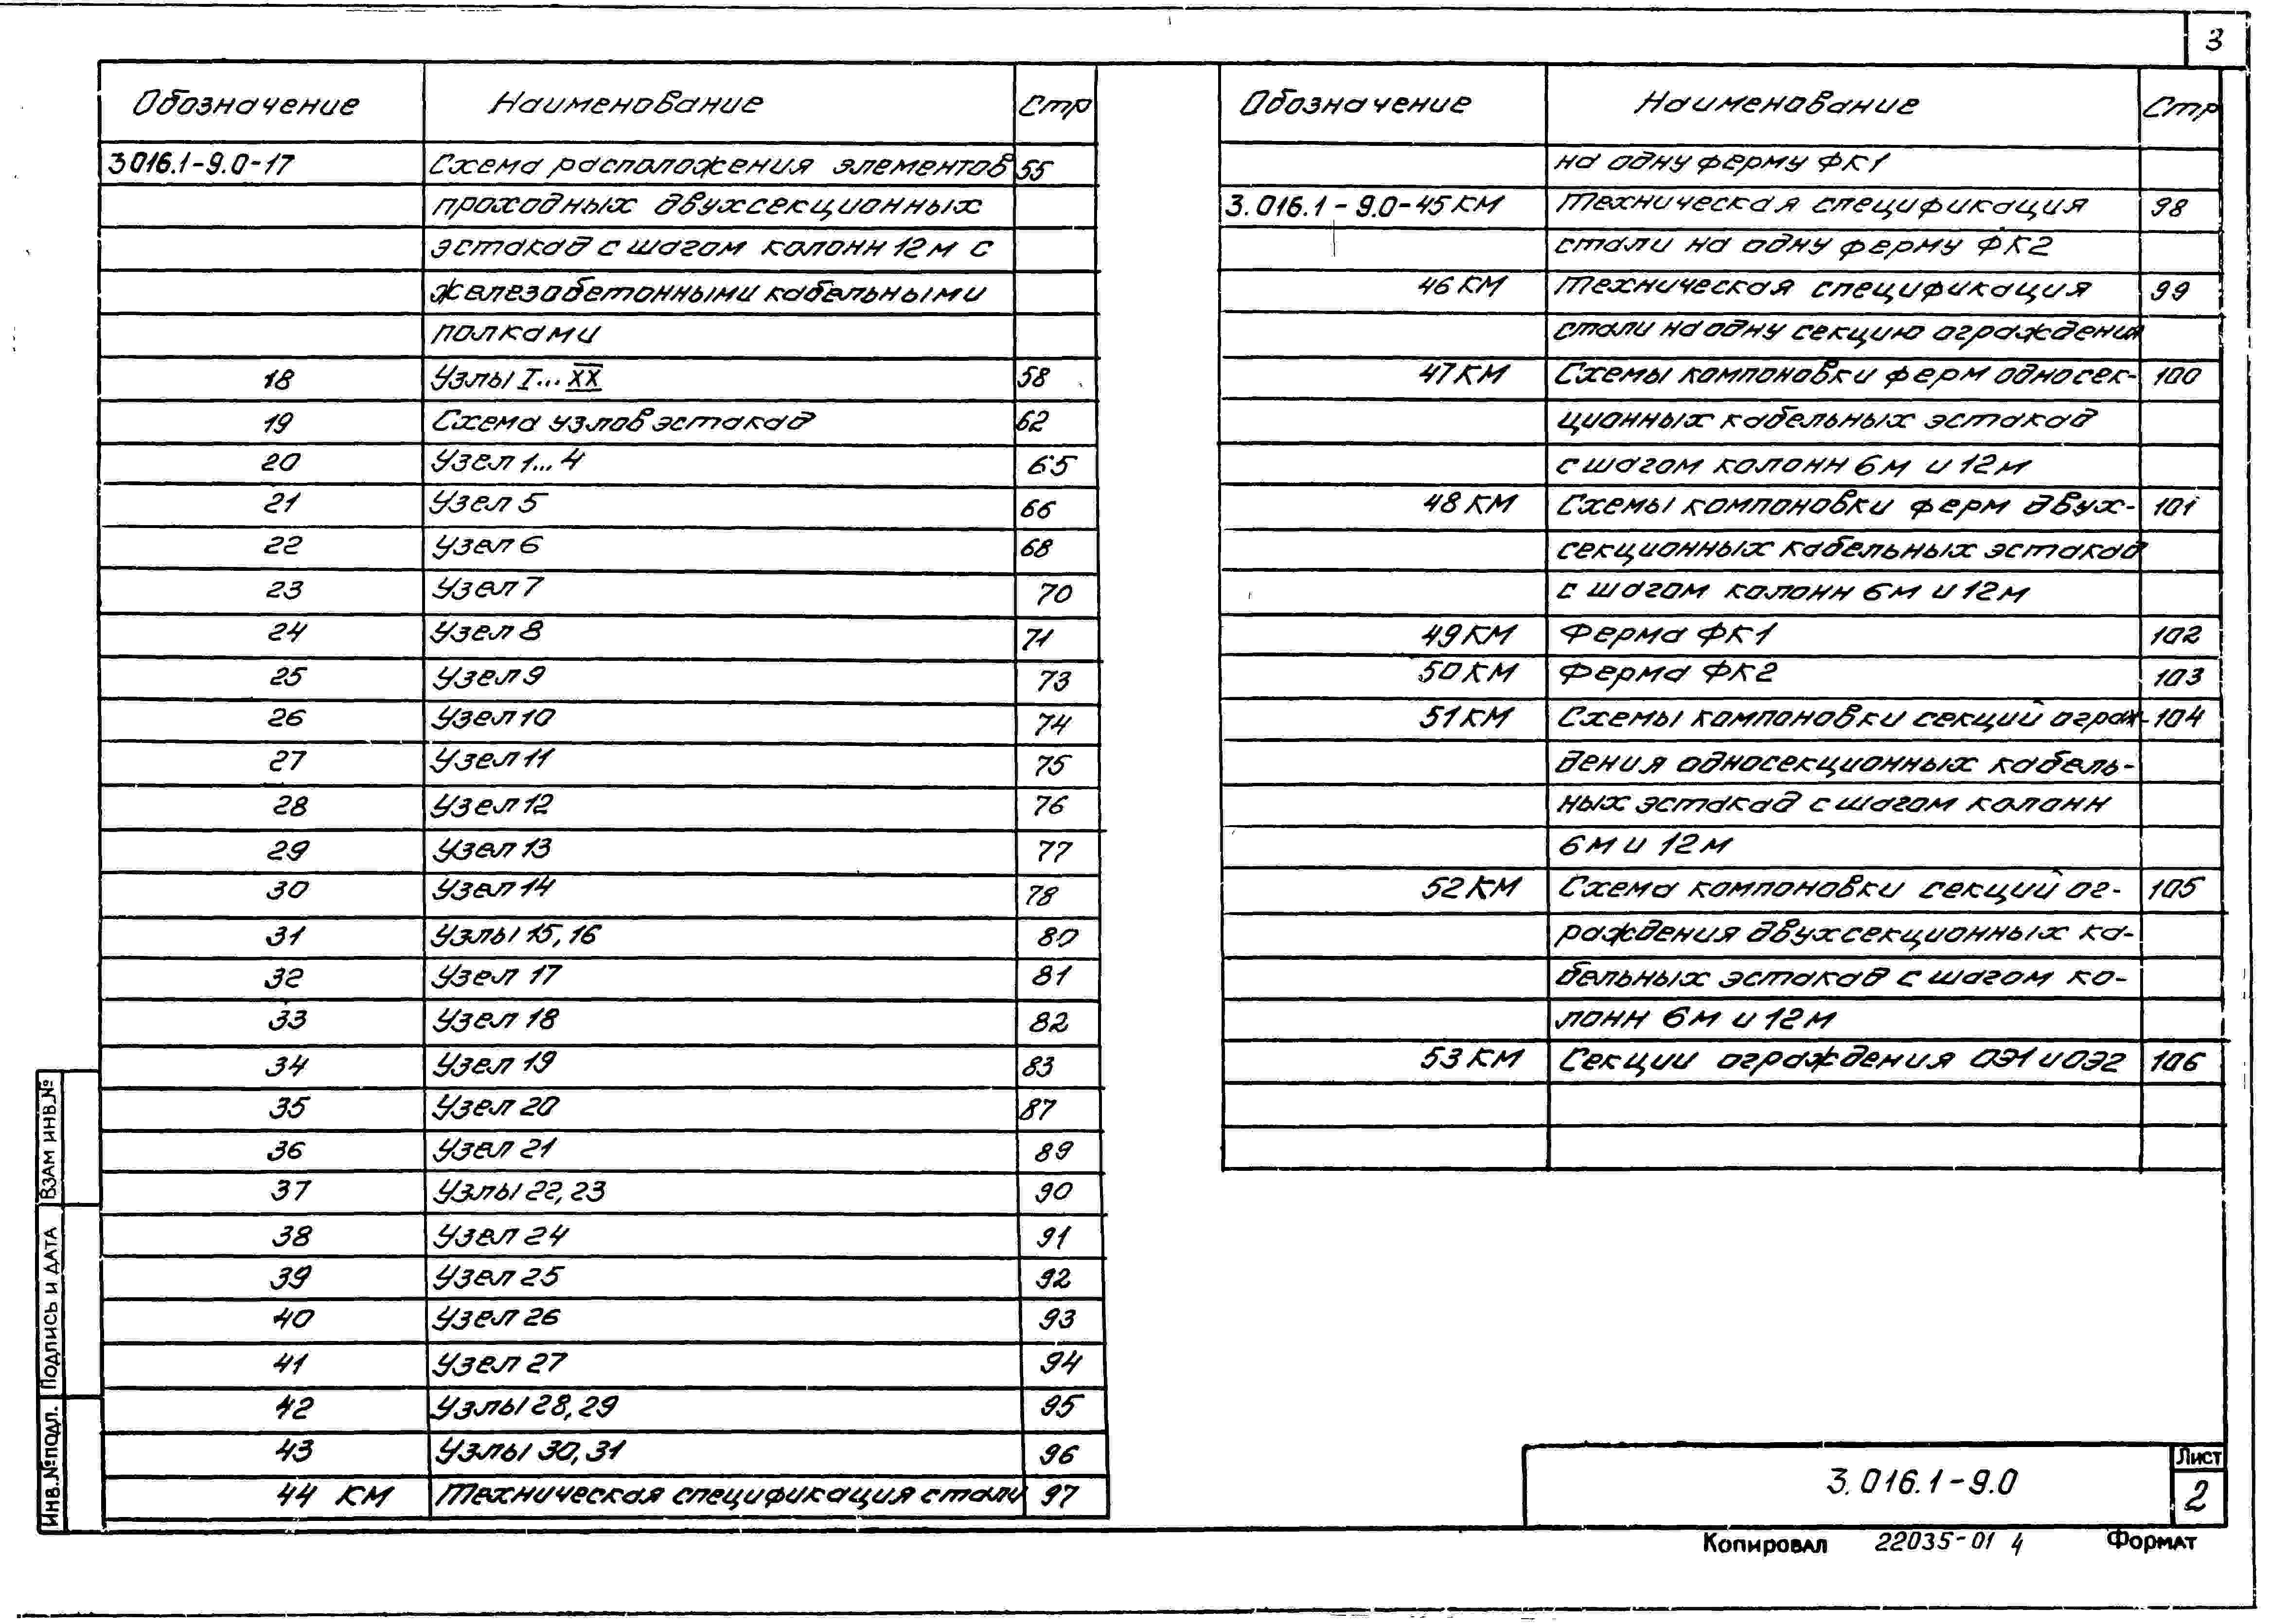 3
Обозначение Наименование Стр
3 016.1-9.0-17 Схема расположения элементов 55
проходных двухсекционных
эстакад с шагом колонн 12м с
железобетонными кабельными
полками
18 Узлы I...XX 58
19 Схема узлов эстакад 62
20 Узел 1...4 65
21 Узел 5 66
22 Узел 6 68
23 Узел 7 70
24 Узел 8 71
25 Узел 9 73
26 Узел 10 74
27 Узел 11 75
28 Узел 12 76
29 Узел 13 77
30 Узел 14 78
31 Узлы 15, 16 80
32 Узел 17 81
33 Узел 18 82
34 Узел 19 83
35 Узел 20 87
36 Узел 21 89
37 Узлы 22, 23 90
38 Узел 24 91
39 Узел 25 92
40 Узел 26 93
41 Узел 27 94
42 Узлы 28, 29 95
43 Узлы 30, 31 96
44 КМ Техническая спецификация стали 97
Обозначение Наименование Стр
на одну ферму ФК1
3.016.1-9.0-45 КМ Техническая спецификация 98
стали на одну ферму ФК2
46 КМ Техническая спецификация 99
стали на одну секцию ограждения
47 КМ Схемы компоновки ферм односек- 100
ционных кабельных эстакад
с шагом колонн 6м и 12м
48 КМ Схемы компоновки ферм двух- 101
секционных кабельных эстакад
с шагом колонн 6м и 12м
49 КМ Ферма ФК1 102
50 КМ Ферма ФК2 103
51 КМ Схемы компоновки секций ограж- 104
дения односекционных кабель-
ных эстакад с шагом колонн
6м и 12м
52 КМ Схема компоновки секций ог- 105
раждения двухсекционных ка-
бельных эстакад с шагом ко-
лонн 6м и 12м
53 КМ Секции ограждения ОЭ1 и ОЭ2 106
Взам инв.№
Подпись и дата
Инв.№подл.
3.016.1-9.0
Лист
2
Копировал 22035-01 4 Формат